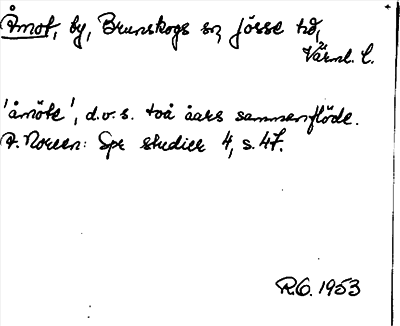 Åmot, by, Brunskogs sn, Jösse hd,
Värml. l.
'åmöte', d.v.s. två åars sammanflöde.
A. Noreen: Spr studier 4, s. 47.
R.O. 1953